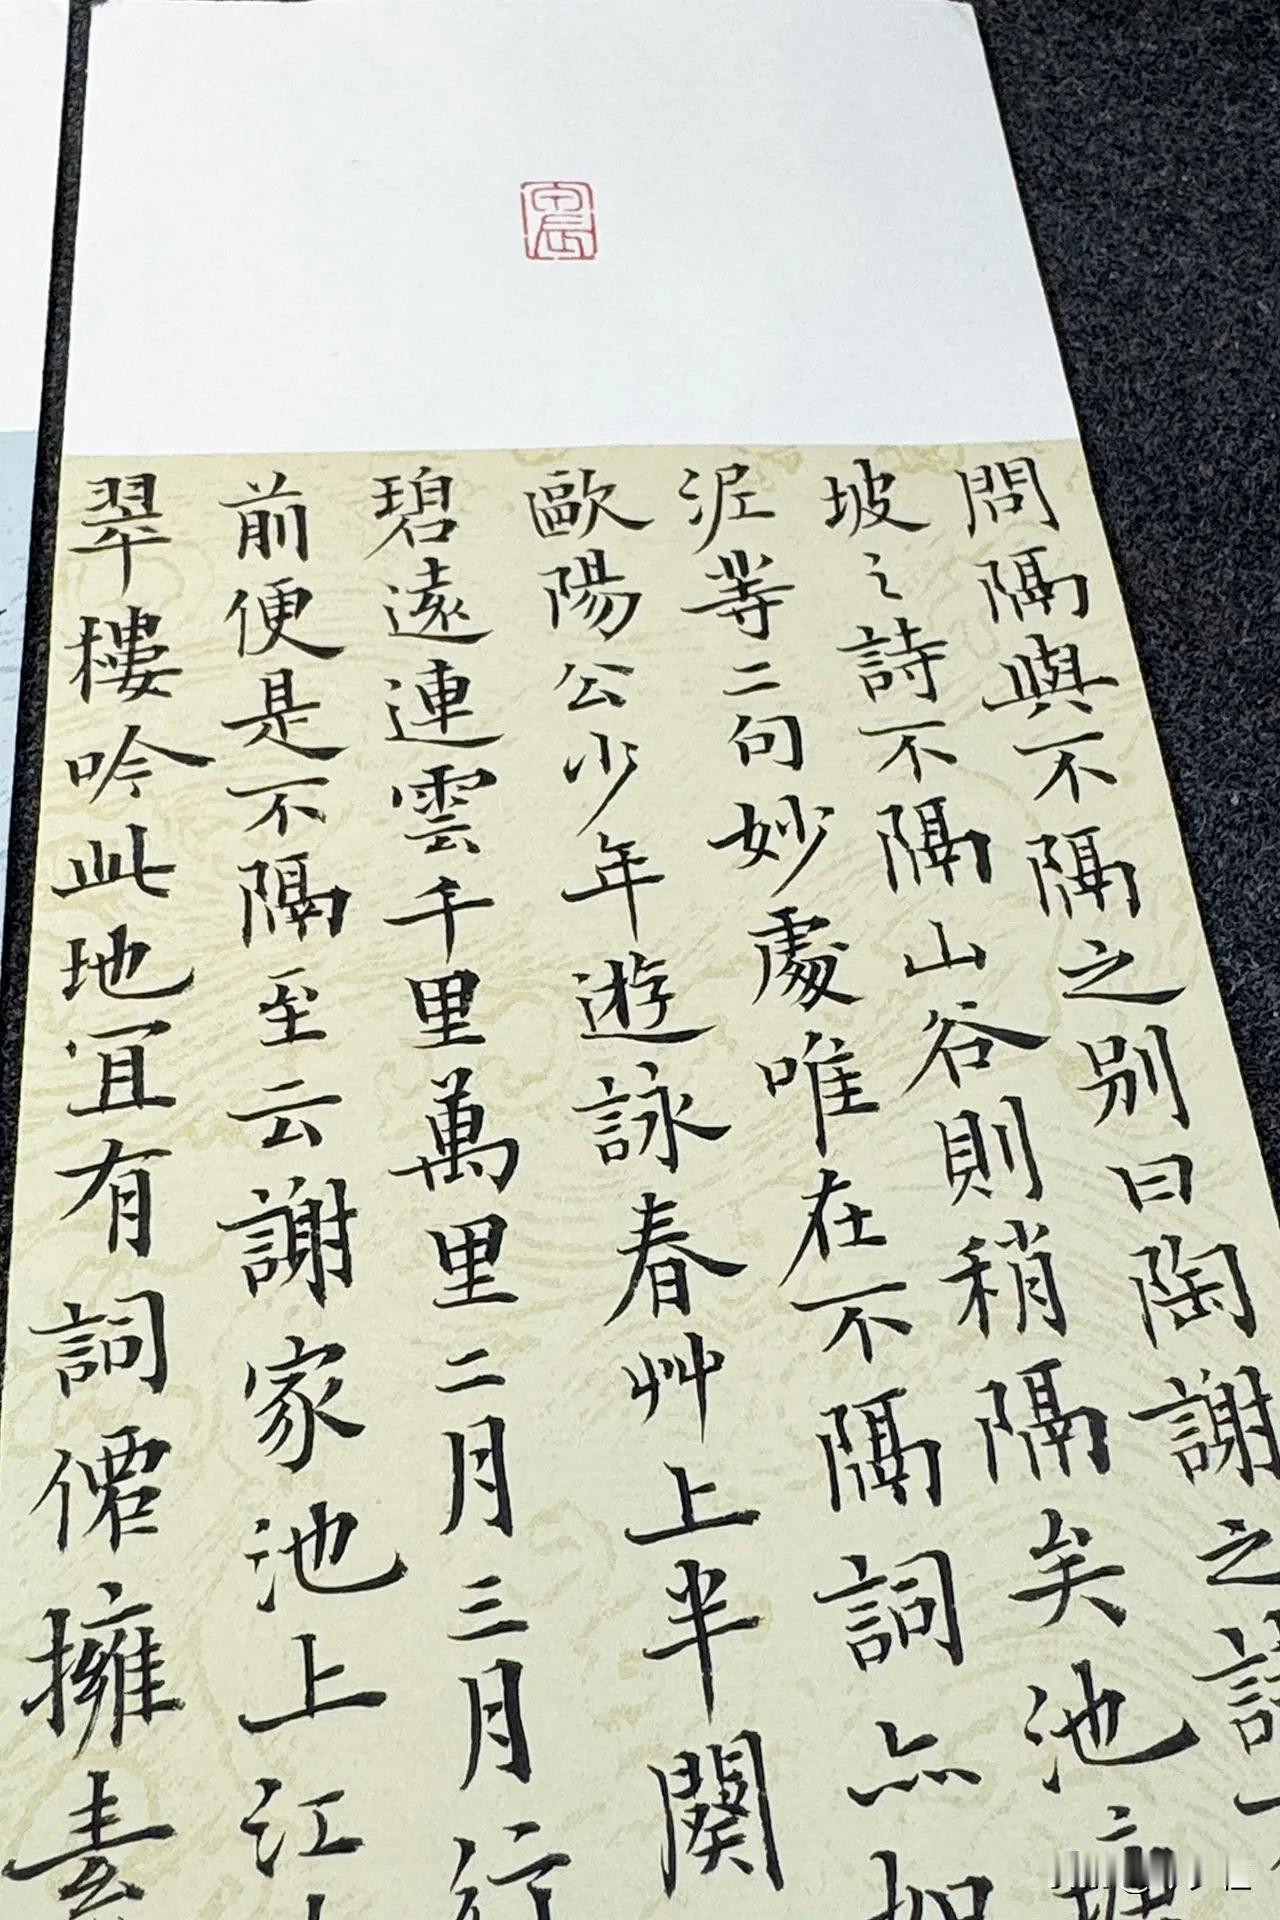 問隔與不隔之别曰陶謝之詩不
坡之詩不隔山谷則稍隔矣池塘
泥等二句妙處唯在不隔詞亦如
歐陽公少年遊詠春艸上半闋
碧遠連雲千里萬里二月三月行
前便是不隔至云謝家池上江
翠樓吟此地宜有詞僊擁素